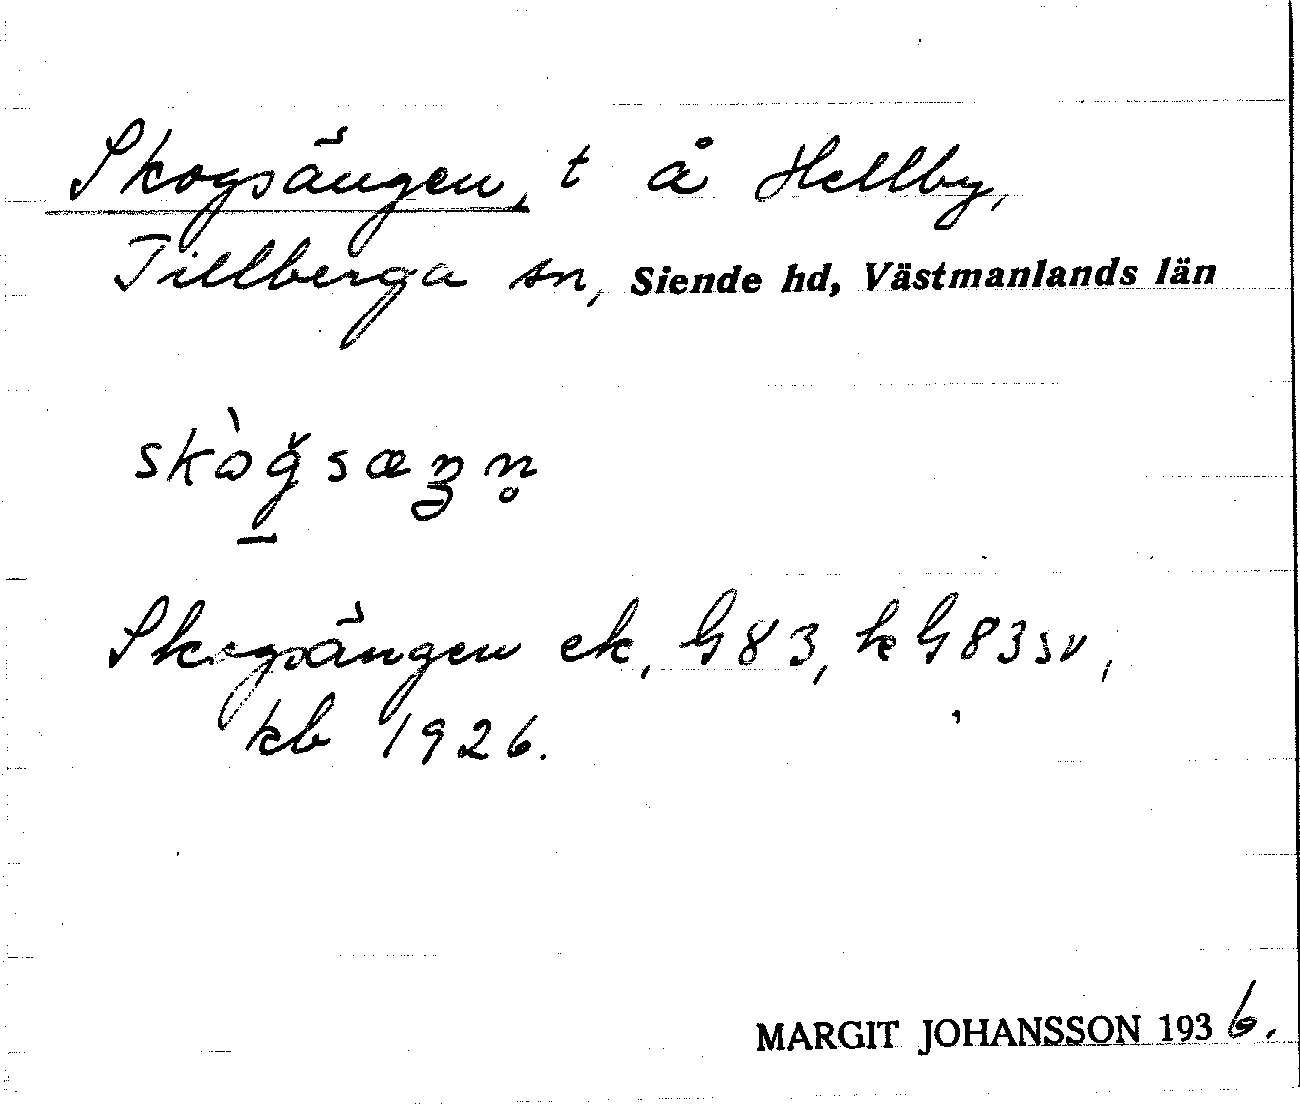 Skogsängen, t å Hellby,
Tillberga sn, Siende hd, Västmanlands län
skògsæŋn̥
Skogsängen ek, G83, k G83sv,
kb 1926.
MARGIT JOHANSSON 1936.